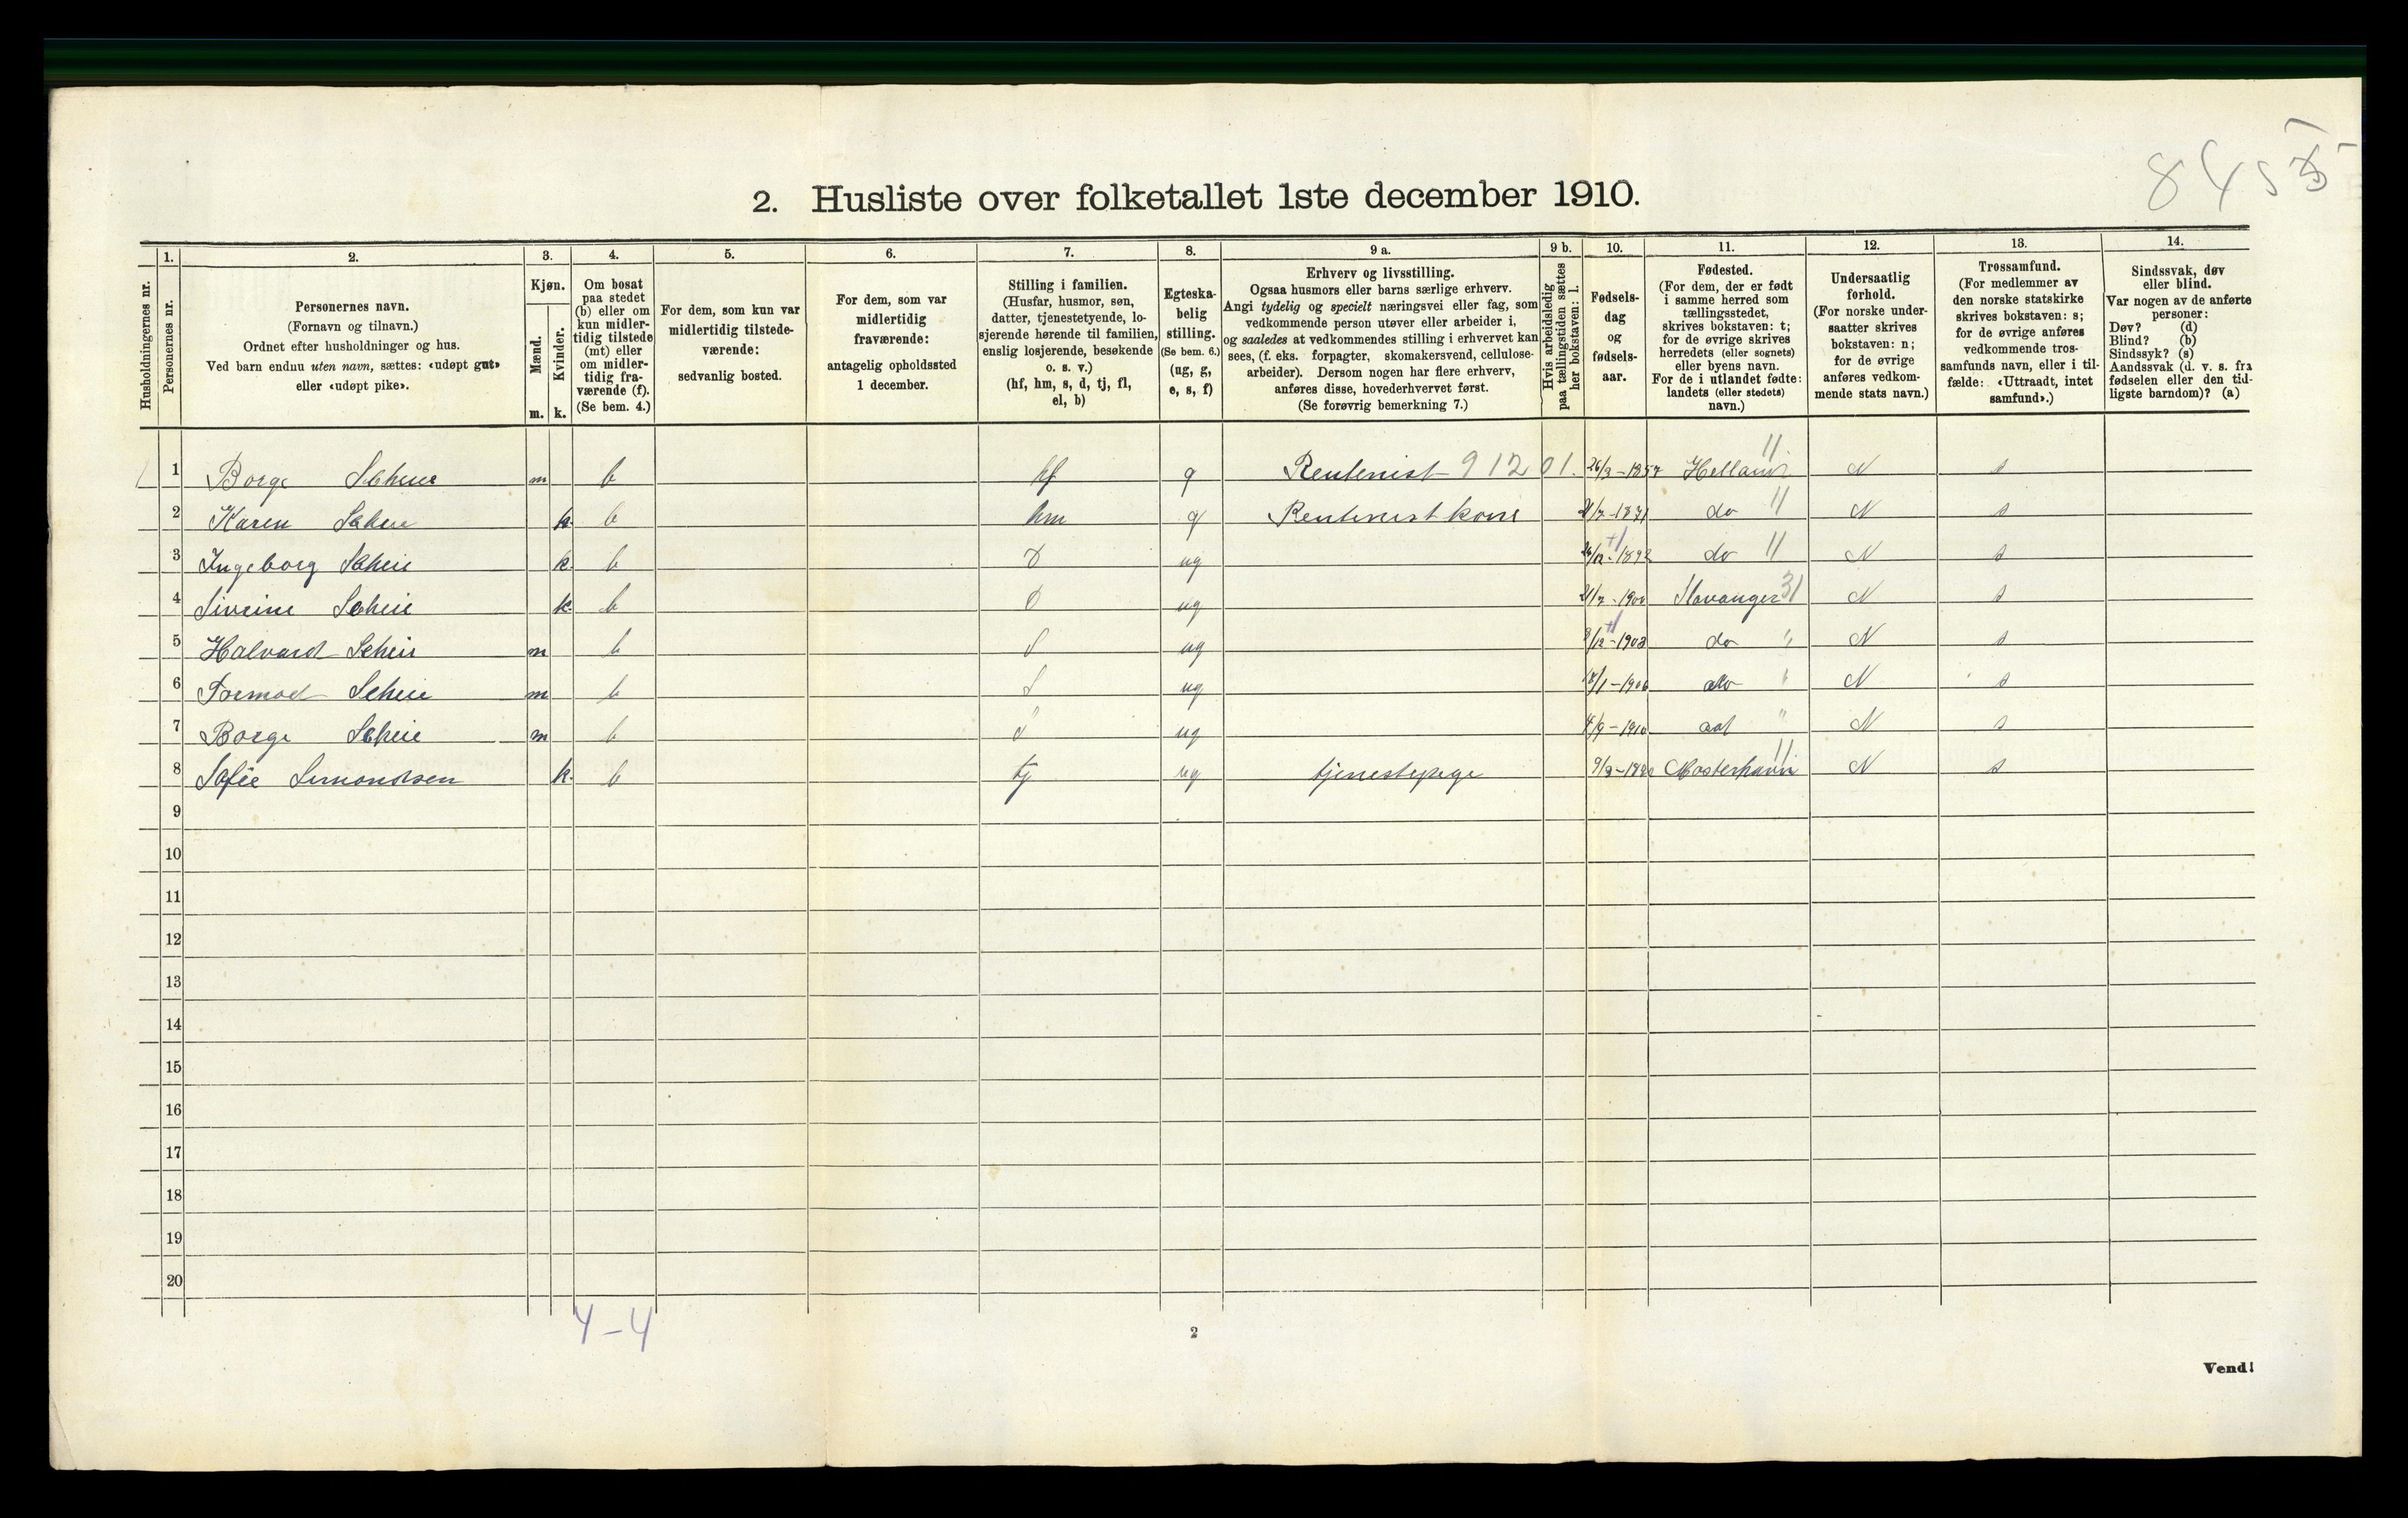 8455
2. Husliste over folketallet 1ste december 1910.
Husholdningernes nr.
1. Personernes nr.
2. Personernes navn. (Fornavn og tilnavn.) Ordnet efter husholdninger og hus. Ved barn endnu uten navn, sættes: «udøpt gut» eller «udøpt pike».
3. Kjøn. Mænd. m. Kvinder. k.
4. Om bosat paa stedet (b) eller om kun midlertidig tilstede (mt) eller om midlertidig fraværende (f). (Se bem. 4.)
5. For dem, som kun var midlertidig tilstedeværende: sedvanlig bosted.
6. For dem, som var midlertidig fraværende: antagelig opholdssted 1 december.
7. Stilling i familien. (Husfar, husmor, søn, datter, tjenestetyende, losjerende hørende til familien, enslig losjerende, besøkende o. s. v.) (hf, hm, s, d, tj, fl, el, b)
8. Egteskabelig stilling. (Se bem. 6.) (ug, g, e, s, f)
9 a. Erhverv og livsstilling. Ogsaa husmors eller barns særlige erhverv. Angi tydelig og specielt næringsvei eller fag, som vedkommende person utøver eller arbeider i, og saaledes at vedkommendes stilling i erhvervet kan sees, (f. eks. forpagter, skomakersvend, cellulosearbeider). Dersom nogen har flere erhverv, anføres disse, hovederhvervet først. (Se forøvrig bemerkning 7.)
9 b. Hvis arbeidsledig paa tællingstiden sættes her bokstaven: l.
10. Fødselsdag og fødselsaar.
11. Fødested. (For dem, der er født i samme herred som tællingsstedet, skrives bokstaven: t; for de øvrige skrives herredets (eller sognets) eller byens navn. For de i utlandet fødte: landets (eller stedets) navn.)
12. Undersaatlig forhold. (For norske undersaatter skrives bokstaven: n; for de øvrige anføres vedkommende stats navn.)
13. Trossamfund. (For medlemmer av den norske statskirke skrives bokstaven: s; for de øvrige anføres vedkommende trossamfunds navn, eller i tilfælde: «Uttraadt, intet samfund».)
14. Sindssvak, døv eller blind. Var nogen av de anførte personer: Døv? (d) Blind? (b) Sindssyk? (s) Aandssvak (d. v. s. fra fødselen eller den tidligste barndom)? (a)
1 1 Borge Scheie m b hf g Rentenist 912 01. 26/3-1857 Helland 11 N s
2 Karen Scheie k b hm g Rentenist kone 21/7-1871 do 11 N s
3 Ingeborg Scheie k b D ug 26/12-1892 do 11 N s
4 Siveine Scheie k b D ug 21/7-1900 Stavanger 31 N s
5 Halvard Scheie m b S ug 3/12-1903 do " N s
6 Tormod Scheie m b S ug 18/1-1906 do " N s
7 Borge Scheie m b S ug 4/9-1910 " N s
8 Sofie Simondsen k b tj ug tjenestepige 9/3-1890 Mosterhavn 11 N s
9
10
11
12
13
14
15
16
17
18
19
20
4-4
2
Vend!